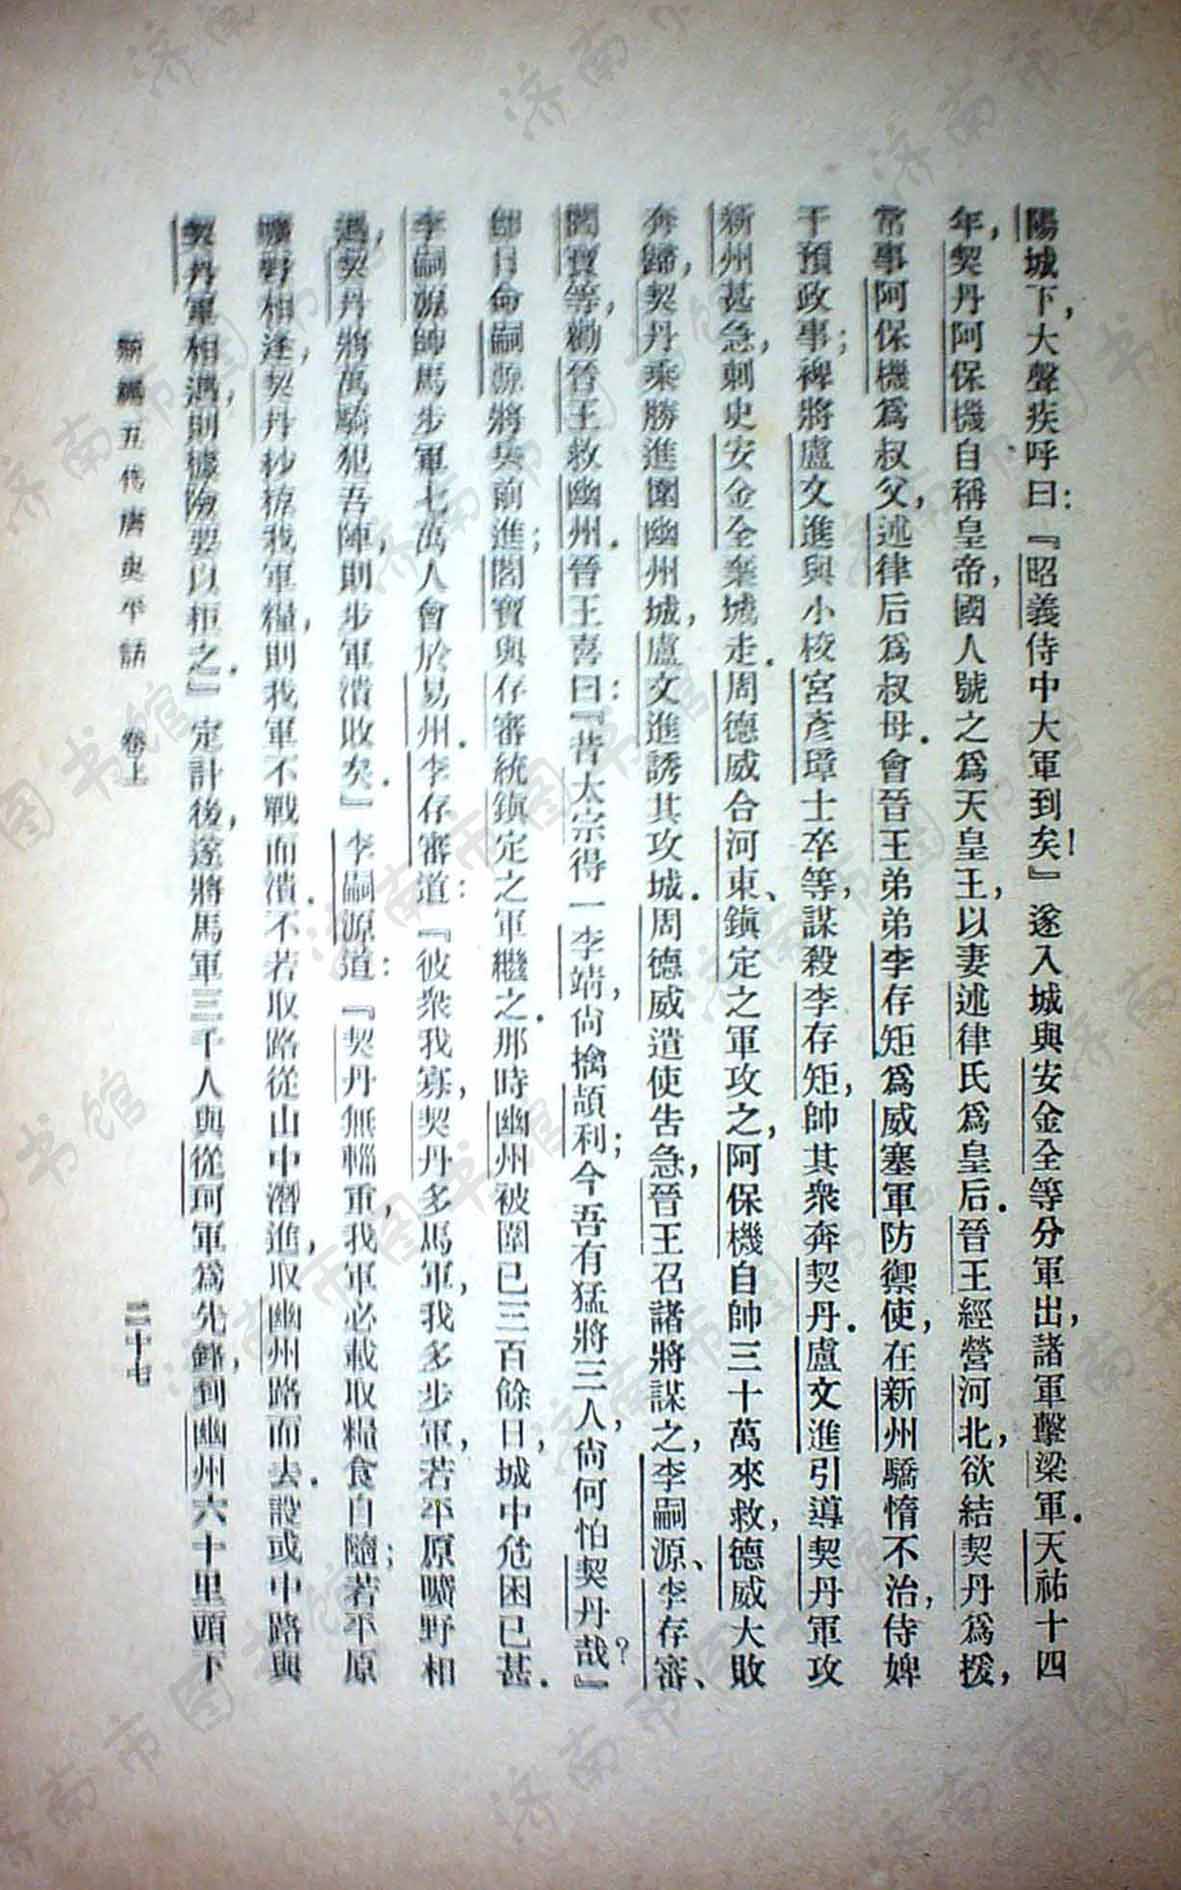 陽城下，大聲疾呼曰：『昭義侍中大軍到矣！』遂入城與安金全等分軍出，諸軍擊梁軍．天祐十四
年，契丹阿保機自稱皇帝，國人號之爲天皇王，以妻述律氏爲皇后．晉王經營河北，欲結契丹爲援，
常事阿保機爲叔父，述律后爲叔母．會晉王弟弟李存矩爲威塞軍防禦使，在新州驕惰不治，侍婢
干預政事；裨將盧文進與小校宮彥璋士卒等，謀殺李存矩，帥其衆奔契丹．盧文進引導契丹軍攻
新州甚急，刺史安金全棄城走．周德威合河東、鎮定之軍攻之，阿保機自帥三十萬來救，德威大敗
奔歸，契丹乘勝進圍幽州城，盧文進誘其攻城．周德威遣使告急，晉王召諸將謀之，李嗣源、李存審、
閻寶等，勸晉王救幽州．晉王喜曰：『昔太宗得一李靖，尙擒頡利；今吾有猛將三人，尙何怕契丹哉？』
卽日命嗣源將兵前進；閻寶與存審統鎮定之軍繼之．那時幽州被圍已三百餘日，城中危困已甚．
李嗣源帥馬步軍七萬人會於易州．李存審道：『彼衆我寡，契丹多馬軍，我多步軍，若平原曠野相
遇，契丹將萬騎犯吾陣，則步軍潰敗矣．』李嗣源道：『契丹無輜重，我軍必載取糧食自隨；若平原
曠野相逢，契丹抄掠我軍糧，則我軍不戰而潰．不若取路從山中潛進，取幽州路而去．設或中路與
契丹軍相遇，則據險要以拒之．』定計後，遂將馬軍三千人與從珂軍爲先鋒，到幽州六十里頭下
新編五代唐史平話　卷上　二十七
济南市图书馆